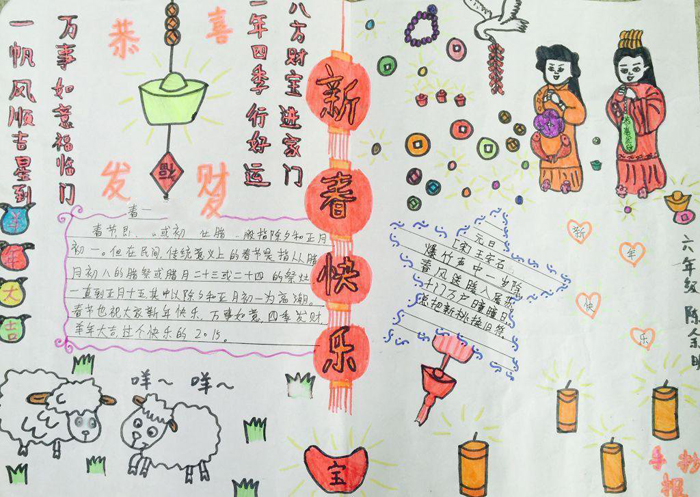 万事如意福临门
一帆风顺吉星到
恭喜发财
八方财宝进家门
一年四季行好运
新春快乐
羊年大吉
春节
或初一
般指除夕和正月
初一。但在民间,传统意义上的春节是指从腊
月初八的腊祭或腊月二十三或二十四的祭灶
一直到正月十五,其中以除夕和正月初一为高潮。
春节也祝大家新年快乐、万事如意、四季发财
羊年大吉,过个快乐的2015。
咩~ 咩~
元日
[宋]王安石
爆竹声中一岁除
春风送暖入屠苏
千门万户曈曈日
总把新桃换旧符。
新年快乐
六年级 陈
宝
手抄报